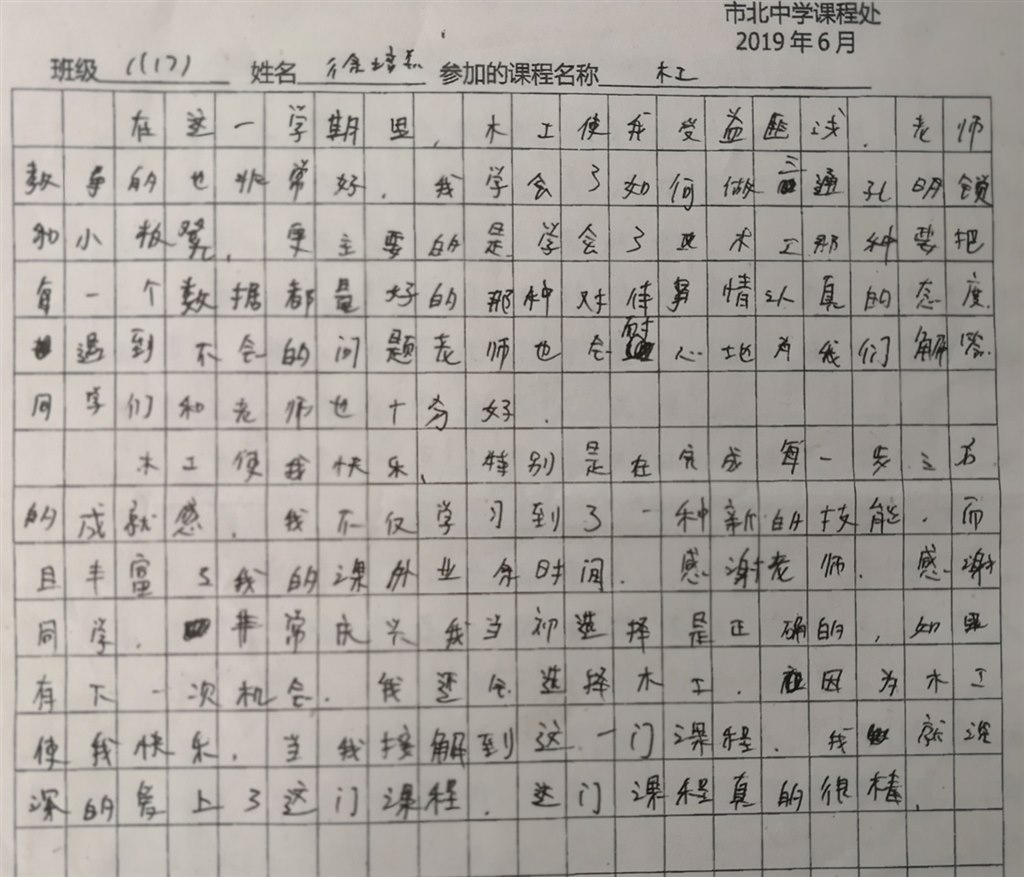 市北中学课程处
2019年6月
班级 1(17) 姓名 徐培 参加的课程名称 木工
在这一学期里，木工使我受益匪浅．老师
教导的也非常好．我学会了如何做三通孔明锁
和小板凳，更主要的是学会了木工那种要把
每一个数据都量好的那种对待事情认真的态度．
遇到不会的问题老师也会耐心地为我们解答．
同学们和老师也十分好．
木工使我快乐，特别是在完成每一步之后
的成就感．我不仅学习到了一种新的技能．而
且丰富了我的课外业余时间．感谢老师．感谢
同学．非常庆兴我当初选择是正确的，如果
有下一次机会．我还会选择木工．因为木工
使我快乐．当我接解到这一门课程．我就深
深的爱上了这门课程．这门课程真的很棒．